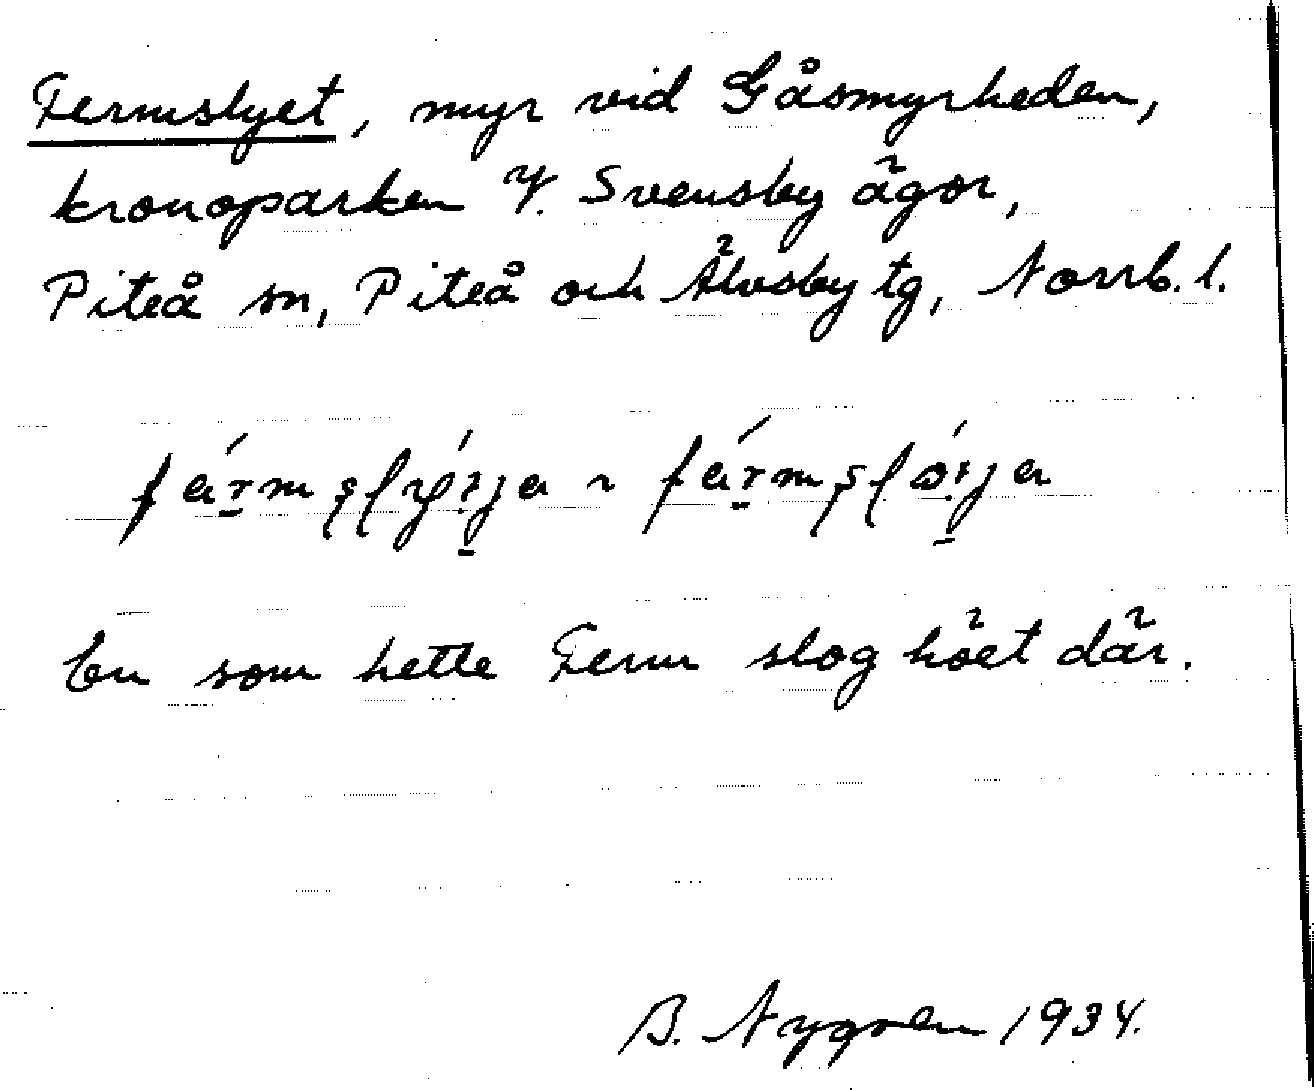 Fermslyet, myr vid Gåsmyrheden,
kronoparken V. Svensby ägor,
Piteå sn, Piteå och Älvsby tg, Norrb. l.
En som hette Ferm slog höet där.
B. Nygren 1934.